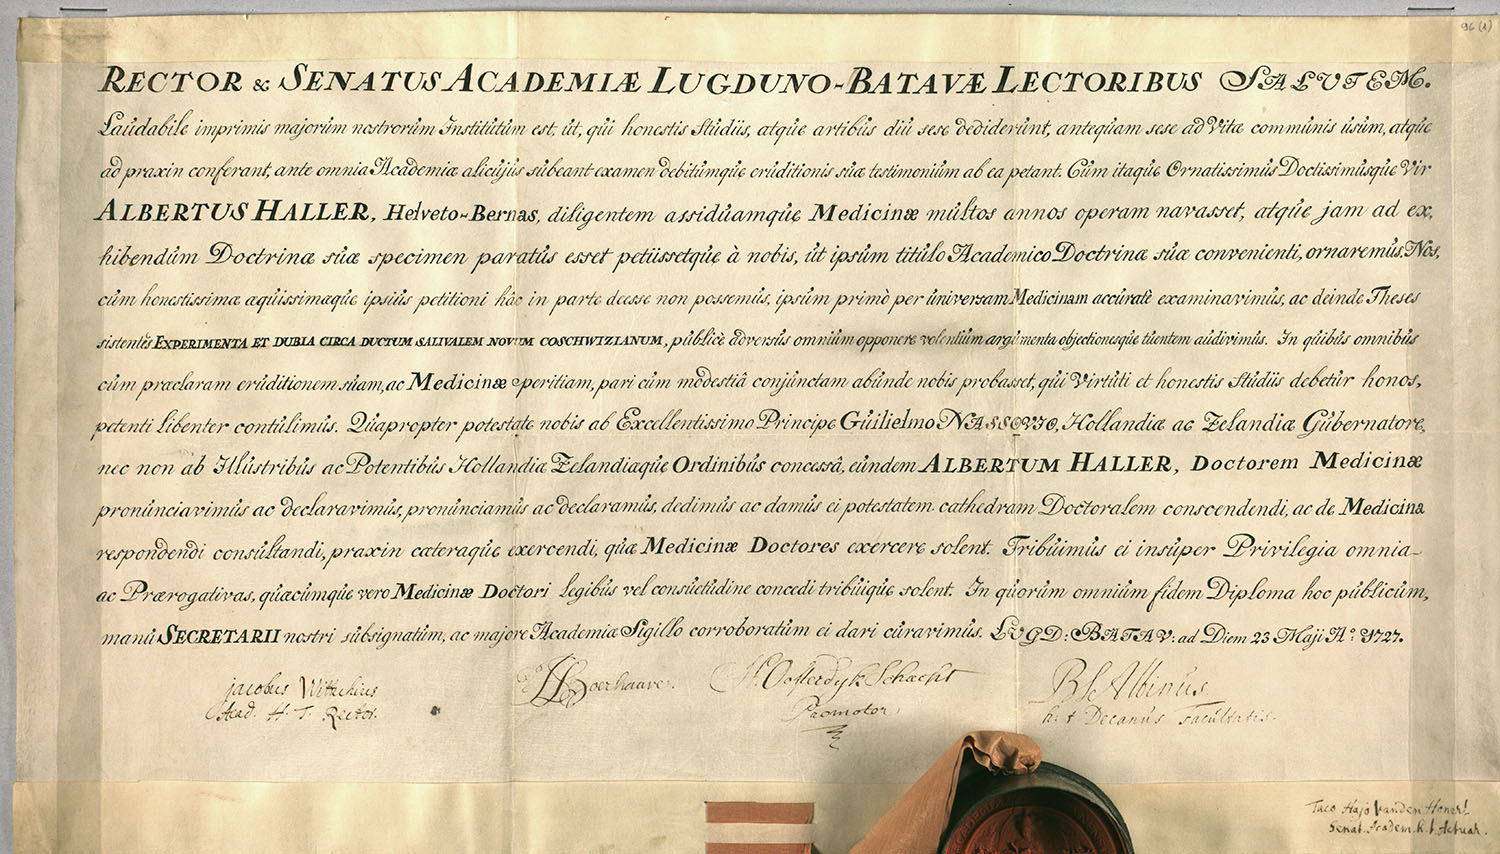 96 (1)
RECTOR & SENATUS ACADEMIÆ LUGDUNO-BATAVÆ LECTORIBUS SALUTEM.
Laudabile imprimis majorum nostrorum Institutum est, ut, qui honestis Studiis, atque artibus diu sese dediderunt, antequam sese ad Vitæ communis usum, atque
ad praxin conferant, ante omnia Academiæ alicujus subeant examen debitumque eruditionis suæ testimonium ab ea petant. Cum itaque Ornatissimus Doctissimusque Vir
ALBERTUS HALLER, Helveto-Bernas, diligentem assiduamque Medicinæ multos annos operam navasset, atque jam ad ex,
hibendum Doctrinæ suæ specimen paratus esset petiissetque à nobis, ut ipsum titulo Academico Doctrinæ suæ convenienti, ornaremus. Nos,
cum honestissimæ æquissimæque ipsius petitioni hâc in parte deesse non possemus, ipsum primò per universam Medicinam accuratè examinavimus, ac deinde Theses
sistentes EXPERIMENTA ET DUBIA CIRCA DUCTUM SALIVALEM NOVUM COSCHWIZIANUM, publicè adversus omnium opponere volentium argumenta objectionesque tuentem audivimus. In quibus omnibus
cum præclaram eruditionem suam, ac Medicinæ peritiam, pari cum modestiâ conjunctam abunde nobis probasset, qui Virtuti et honestis Studiis debetur honos,
petenti libenter contulimus. Quapropter potestate nobis ab Excellentissimo Principe Guilielmo NASSOVIO, Hollandiæ ac Zelandiæ Gubernatore,
nec non ab Illustribus ac Potentibus Hollandiæ Zelandiæque Ordinibus concessâ, eundem ALBERTUM HALLER, Doctorem Medicinæ
pronunciavimus ac declaravimus, pronunciamus ac declaramus, dedimus ac damus ei potestatem cathedram Doctoralem conscendendi, ac de Medicina
respondendi consultandi, praxin cæteraque exercendi, quæ Medicinæ Doctores exercere solent. Tribuimus ei insuper Privilegia omnia
ac Prærogativas, quæcumque vero Medicinæ Doctori legibus vel consuetudine concedi tribuique solent. In quorum omnium fidem Diploma hoc publicum,
manu SECRETARII nostri subsignatum, ac majore Academiæ Sigillo corroboratum ei dari curavimus. LUGD: BATAV: ad Diem 23 Maji Aº. 1727.
Jacobus Wittichius
Acad. H. T. Rector.
H Boerhaave.
H. Oosterdyk Schacht
Promotor
B S Albinus
h. t Decanus Facultatis.
Taco Hajo vanden Honert
Senat. Academ. h. t. Actuar.